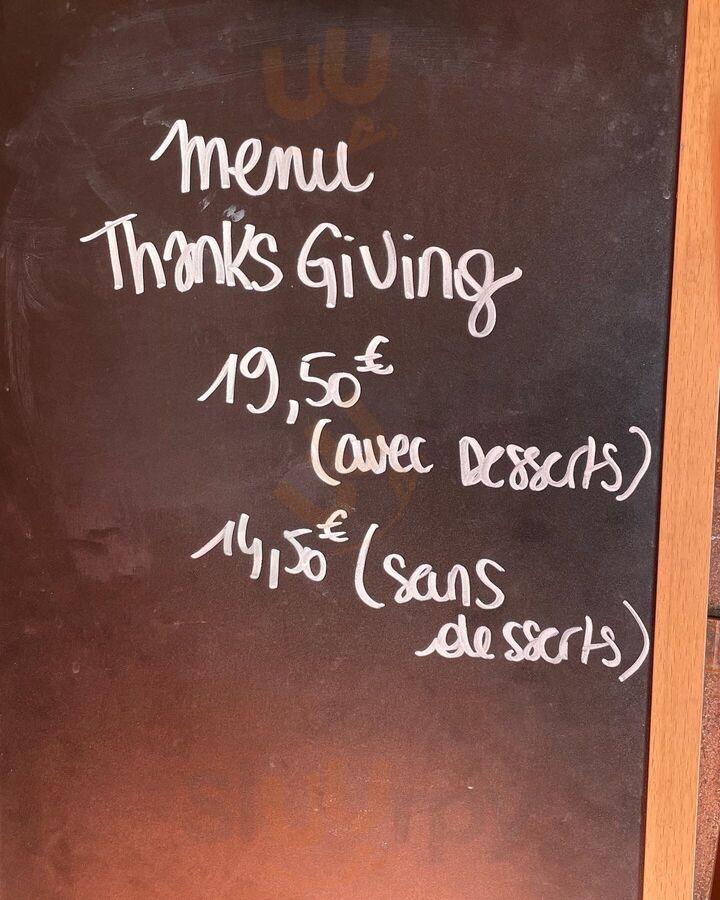 Menu
ThanksGiving
19,50€
(avec Desserts)
14,50€ (sans
desserts)